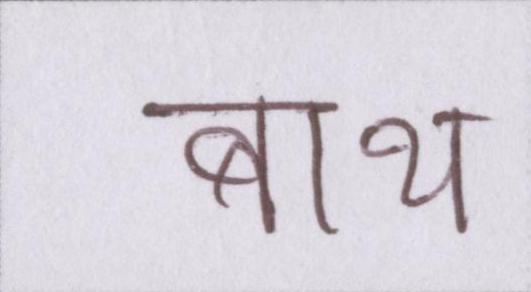 बाथ